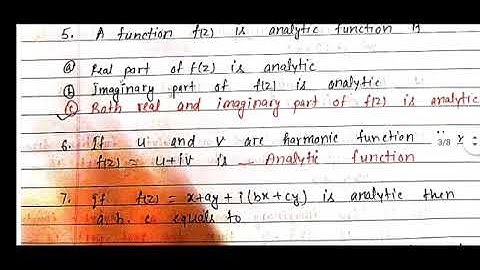 5. A function f(z) is analytic function if
(a) Real part of f(z) is analytic
(b) Imaginary part of f(z) is analytic
(c) Both real and imaginary part of f(z) is analytic
6. If u and v are harmonic function
f(z) = u+iv is Analytic function
3/8
7. If f(z) = x+ay+i(bx+cy) is analytic then
a, b, c equals to